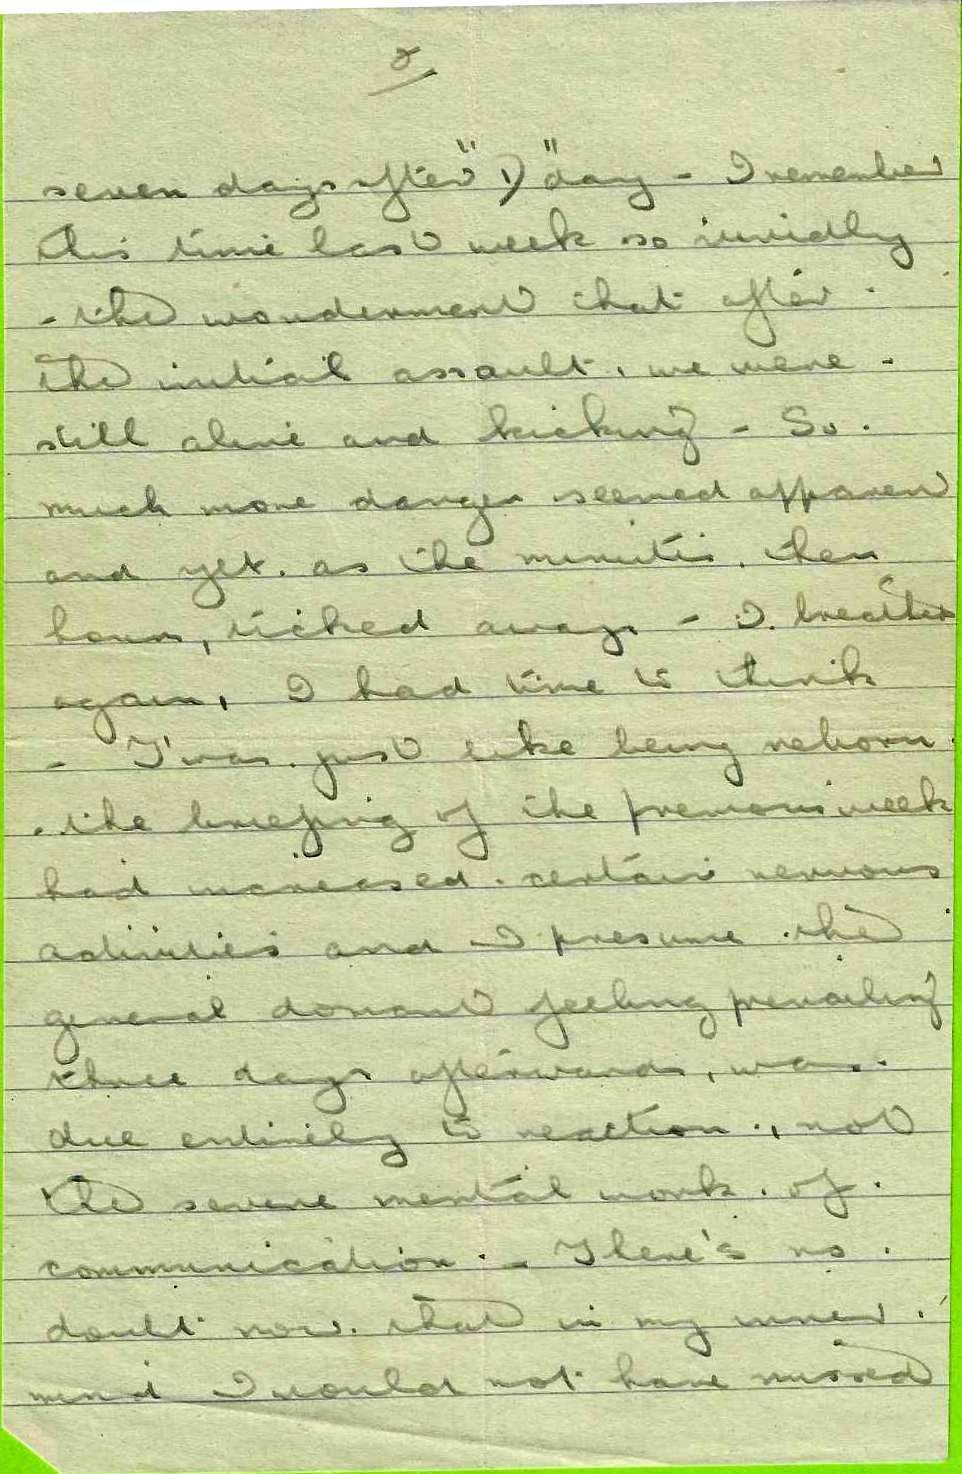 2
seven days after "D" day - I remember
this time last week so vividly
- the wonderment that after
the initial assault, we were -
still alive and kicking - So.
much more danger seemed apparent
and yet. as the minutes, then
hours, ticked away - I. breathed
again, I had time to think
- T'was. just like being reborn.
. the briefing of the previous week
had increased. certain nervous
activities and I presume. the
general dormant feeling prevailing
three days afterwards, was.
due entirely to reaction., not
the severe mental work. of.
communication. - There's no.
doubt now. that in my inner.
mind I would not have missed